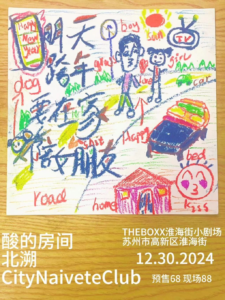 Happy
New
Year
boy
sun
TV
明天
girl
跨年
dog
要在家
陪女朋友
Happy
bed
road
home
Kiss
酸的房间
北溯
CityNaiveteClub
THEBOXX淮海街小剧场
苏州市高新区淮海街
12.30.2024
预售68 现场88